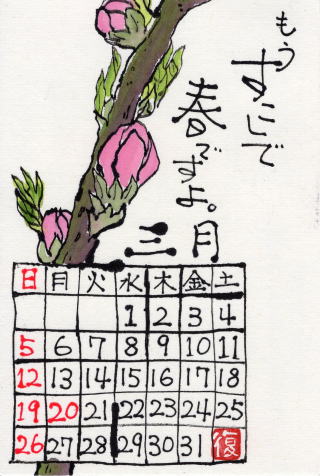 もう
すこしで
春ですよ。
三月
日 月 火 水 木 金 土
1 2 3 4
5 6 7 8 9 10 11
12 13 14 15 16 17 18
19 20 21 22 23 24 25
26 27 28 29 30 31 復